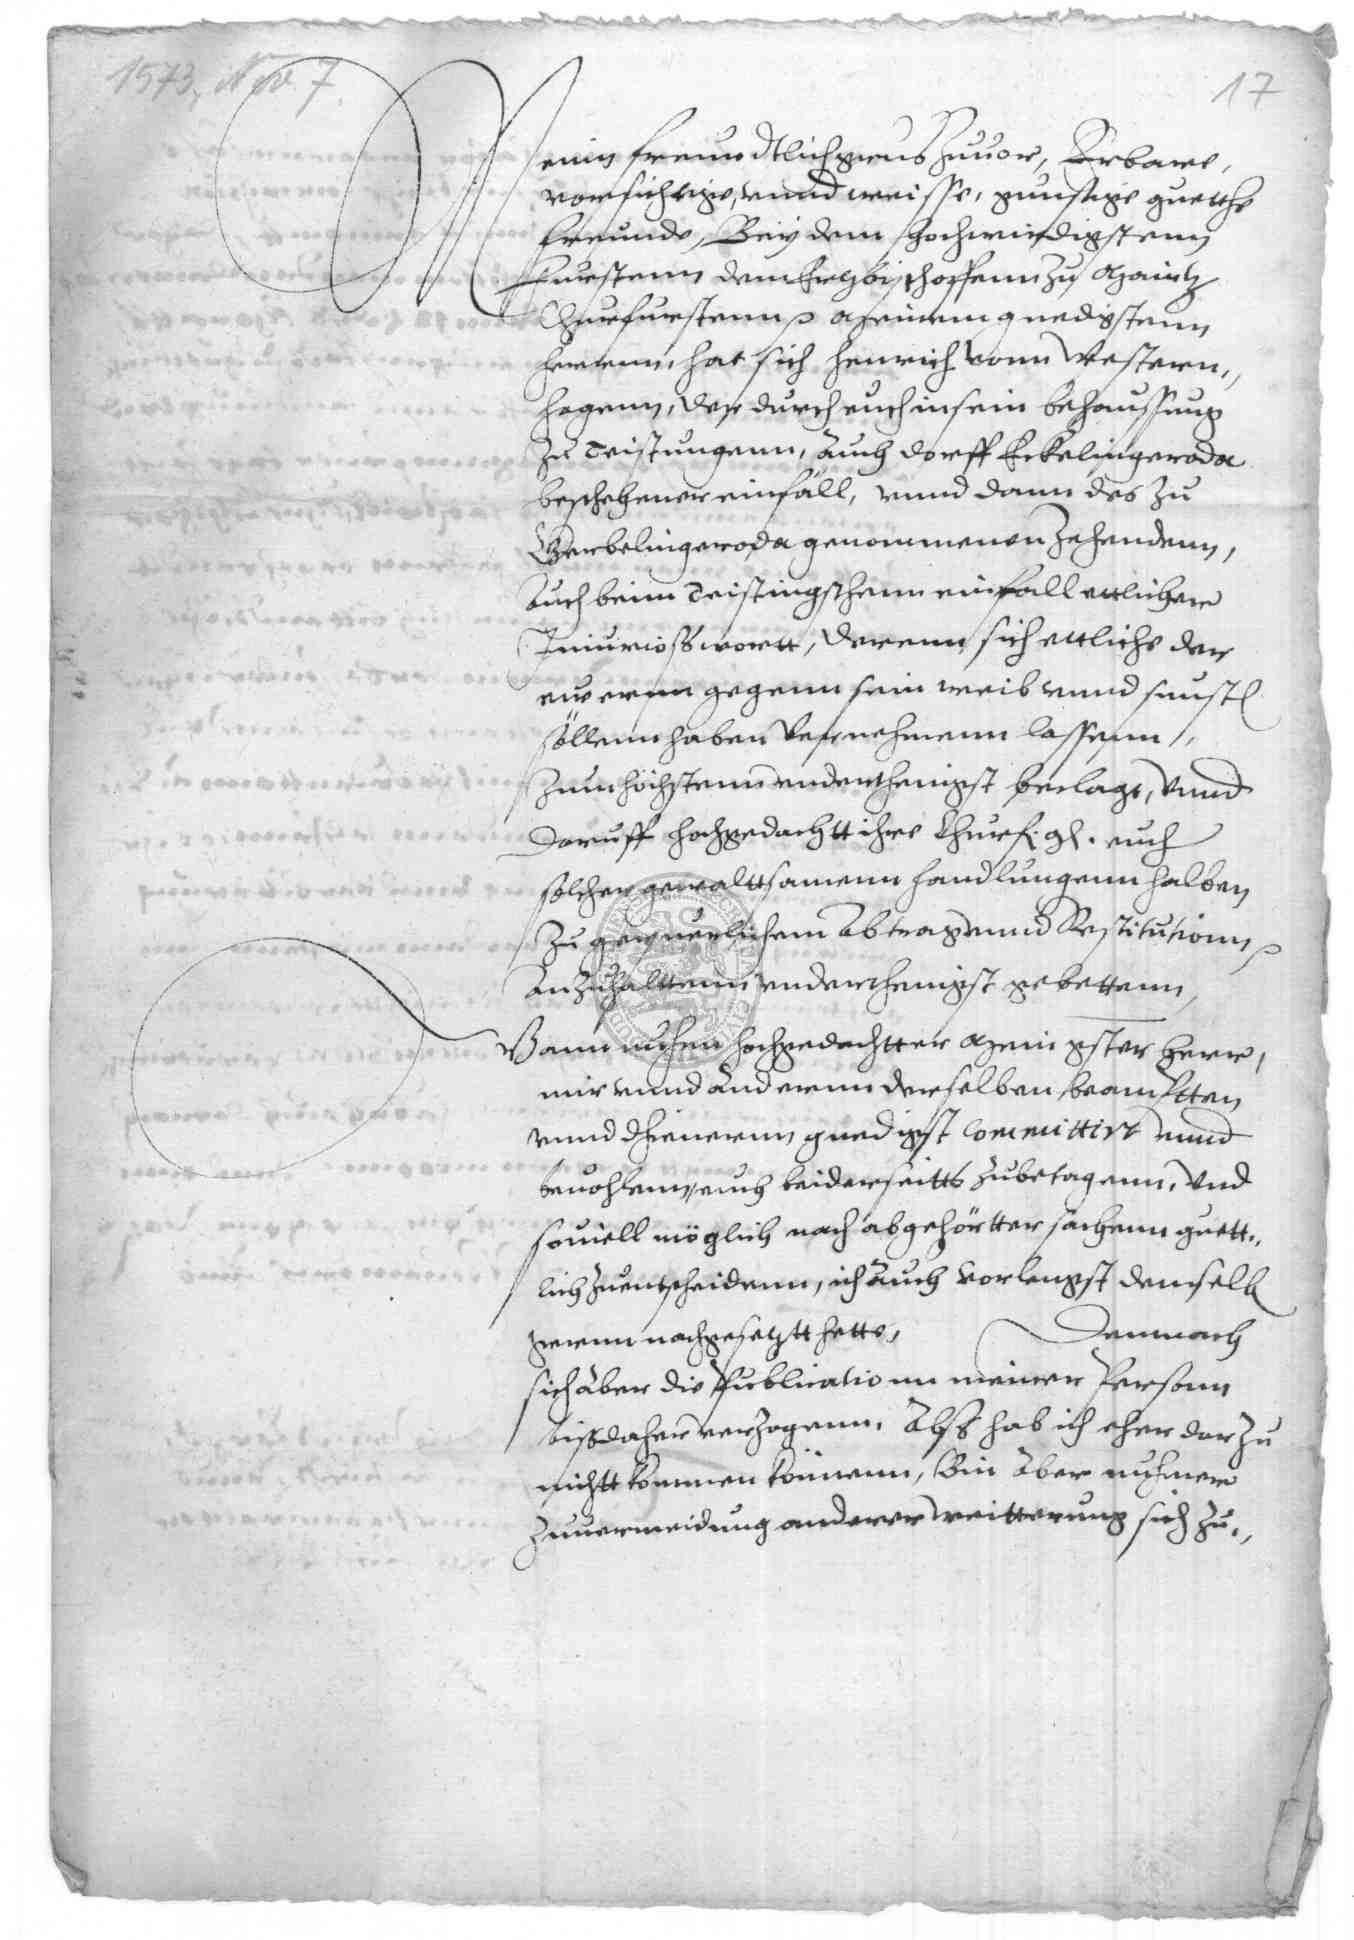 1573, Nov. 7.
17
Mein freundtlich grus zuuor, Erbare,
vorsichtige, vnnd weisse, gunstige guetthe
freunde, Bey dem Hochwirdigstenn
Furstenn dem Ertzbischoffenn zu Maintz
Churfurstenn Meinem gnedigstenn
herrenn, hat sich Henrich vonn Western,,
hagenn, der durch euch in sein behaussung
zu Teistungenn, auch dorff Eckelingeroda
beschehener einfäll, vnnd dann des zu
Berbelingeroda genommenen Zehendenn,
auch beim Teistingschenn einfall ettlicher
Iniurioss wortt, derenn sich ettliche der
ewerenn gegenn sein weib vnnd sunst
söllenn haben vernehmenn lassenn,
zum höchstenn vnderthenigst beclagt, vnnd
daruff hochgedachtt ihre Churf. G. euch
solcher gewalttsamenn handlungenn halben
zu gepuerlichem abtrag vnnd Restitutionn
anzuhalttenn vnderthenigst gebettenn,
Wann nuhen hochgedachtter Mein gster herr,
mir vnnd anderenn derselben beambtten
vnnd dhienernn gnedigst committirt vnnd
beuohlenn, euch beiderseitts zubetagenn, vnd
souiell möglich nach abgehörtter sachenn guett,,
lich zuentscheidenn, ich auch vorlengst demselb
gerenn nachgesetztt hette, Demnach
sich aber die Publicationn meiner Personn
biss daher verzogenn, Alss hab ich eher darzu
nichtt kommen könnenn, Bin aber nuhmer
zuuermeidung anderer weitterung sich zu,,